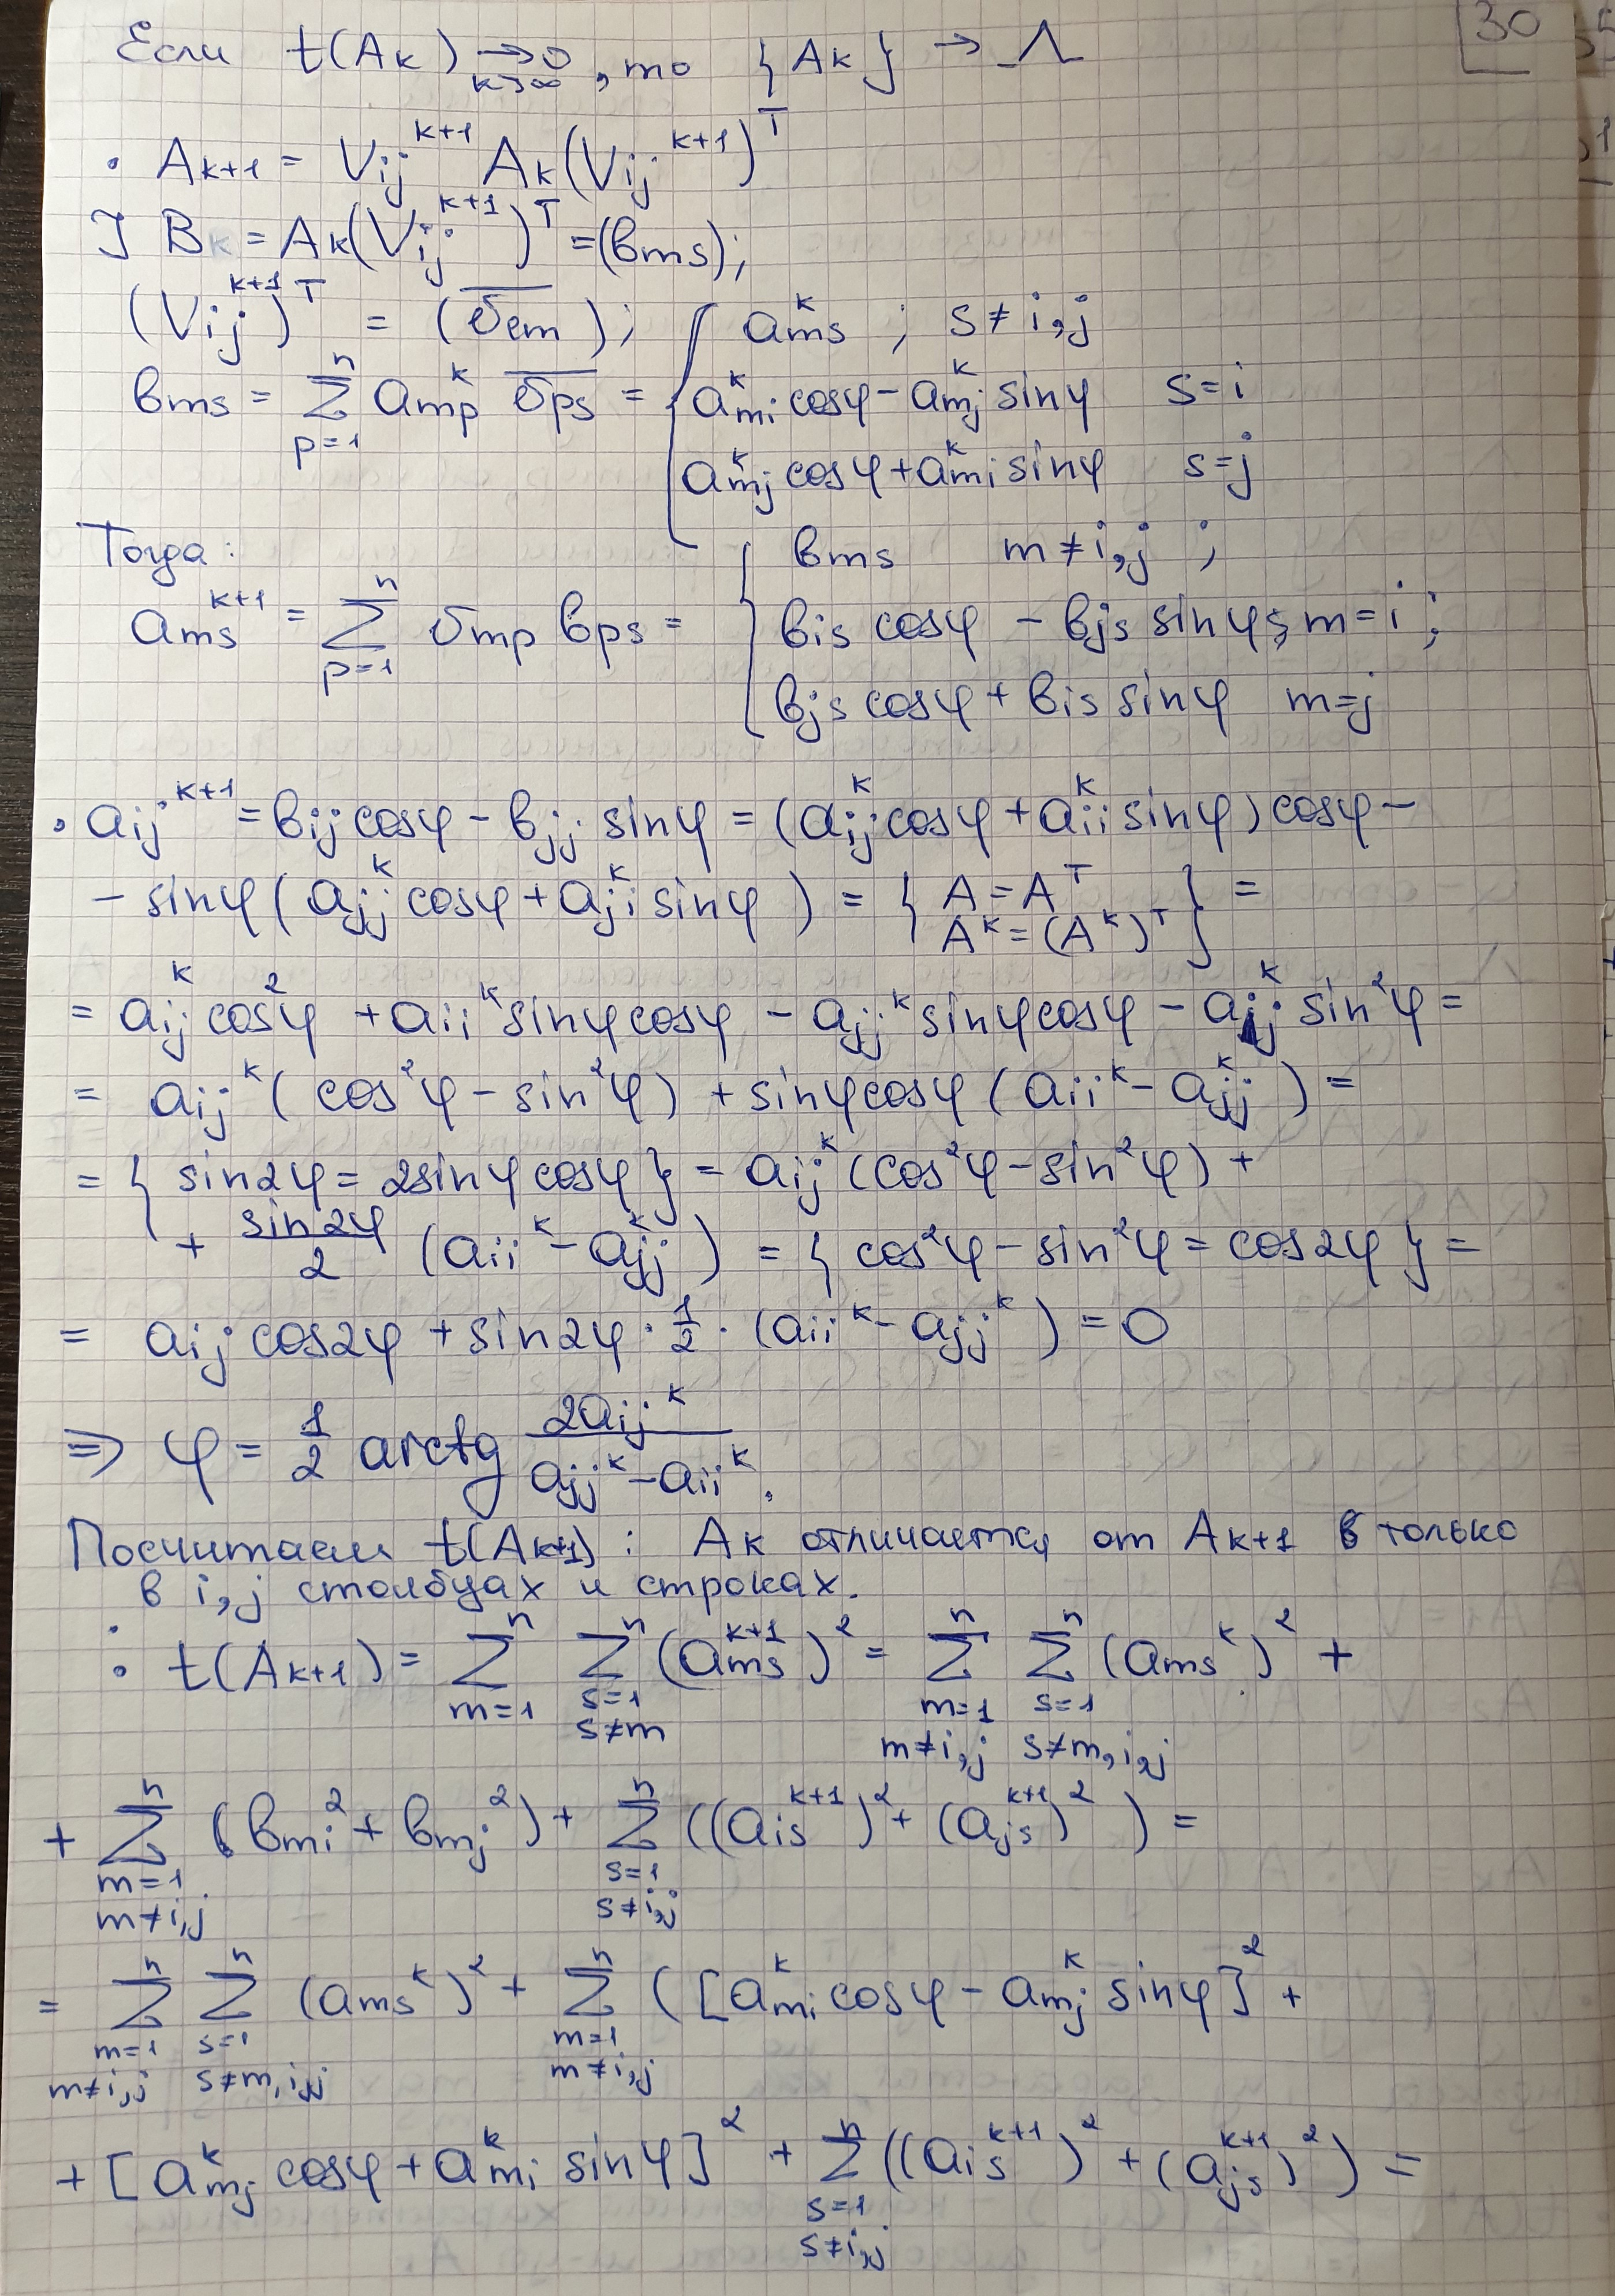 30
Если t(Aₖ) →_{k→∞} 0, то {Aₖ} → Λ
• Aₖ₊₁ = Vᵢⱼ^{k+1} Aₖ (Vᵢⱼ^{k+1})^T
] Bₖ = Aₖ(Vᵢⱼ^{k+1})^T = (b_{ms});
(Vᵢⱼ^{k+1})^T = (\overline{σ_{em}});
b_{ms} = Σ_{p=1}^{n} a_{mp}^k \overline{σ_{ps}} = { a_{ms}^k ; s ≠ i,j
a_{mi}^k cosφ − a_{mj}^k sinφ s = i
a_{mj}^k cosφ + a_{mi}^k sinφ s = j
Тогда:
a_{ms}^{k+1} = Σ_{p=1}^{n} σ_{mp} b_{ps} = { b_{ms} m ≠ i,j ;
b_{is} cosφ − b_{js} sinφ; m = i ;
b_{js} cosφ + b_{is} sinφ m = j
• a_{ij}^{k+1} = b_{ij} cosφ − b_{jj} sinφ = (a_{ij}^k cosφ + a_{ii}^k sinφ) cosφ −
− sinφ (a_{jj}^k cosφ + a_{ji}^k sinφ) = { A = A^T A^k = (A^k)^T } =
= a_{ij}^k cos²φ + a_{ii}^k sinφ cosφ − a_{jj}^k sinφ cosφ − a_{ij}^k sin²φ =
= a_{ij}^k (cos²φ − sin²φ) + sinφ cosφ (a_{ii}^k − a_{jj}^k) =
= { sin2φ = 2sinφ cosφ } = a_{ij}^k (cos²φ − sin²φ) +
+ \frac{sin2φ}{2} (a_{ii}^k − a_{jj}^k) = { cos²φ − sin²φ = cos2φ } =
= a_{ij} cos2φ + sin2φ · \frac{1}{2} · (a_{ii}^k − a_{jj}^k) = 0
⇒ φ = \frac{1}{2} arctg \frac{2a_{ij}^k}{a_{jj}^k − a_{ii}^k}.
Посчитаем t(Aₖ₊₁) : Aₖ отличается от Aₖ₊₁ в только
в i,j столбцах и строках.
• t(Aₖ₊₁) = Σ_{m=1}^{n} Σ_{s=1, s≠m}^{n} (a_{ms}^{k+1})² = Σ_{m=1, m≠i,j}^{n} Σ_{s=1, s≠m,i,j}^{n} (a_{ms}^k)² +
+ Σ_{m=1, m≠i,j}^{n} (b_{mi}² + b_{mj}²) + Σ_{s=1, s≠i,j}^{n} ((a_{is}^{k+1})² + (a_{js}^{k+1})²) =
= Σ_{m=1, m≠i,j}^{n} Σ_{s=1, s≠m,i,j}^{n} (a_{ms}^k)² + Σ_{m=1, m≠i,j}^{n} ([a_{mi}^k cosφ − a_{mj}^k sinφ]² +
+ [a_{mj}^k cosφ + a_{mi}^k sinφ]² + Σ_{s=1, s≠i,j}^{n} ((a_{is}^{k+1})² + (a_{js}^{k+1})²) =